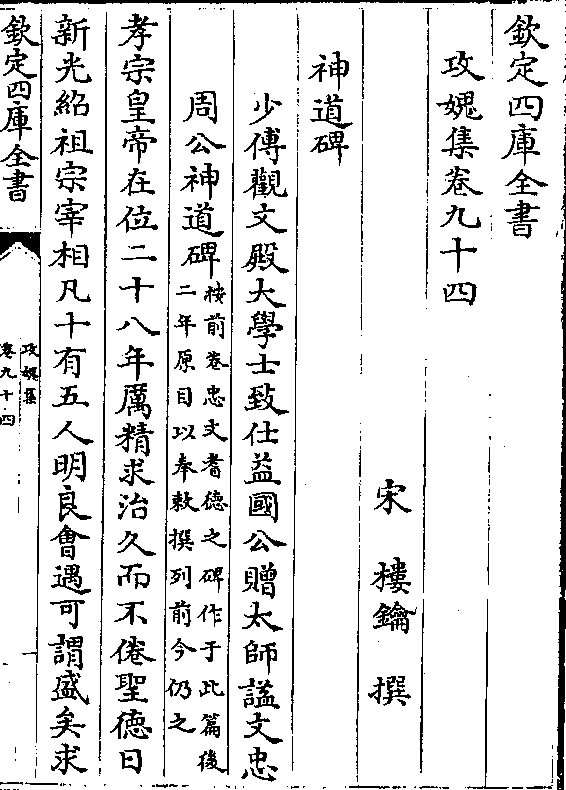 欽定四庫全書
攻媿集卷九十四
宋 樓鑰 撰
神道碑
少傅觀文殿大學士致仕益國公贈太師諡文忠
周公神道碑 按前卷忠文耆德之碑作于此篇後
二年原目以奉敕撰列前今仍之
孝宗皇帝在位二十八年厲精求治久而不倦聖德日
新光紹祖宗宰相凡十有五人明良會遇可謂盛矣求
欽定四庫全書
攻媿集
卷九十四